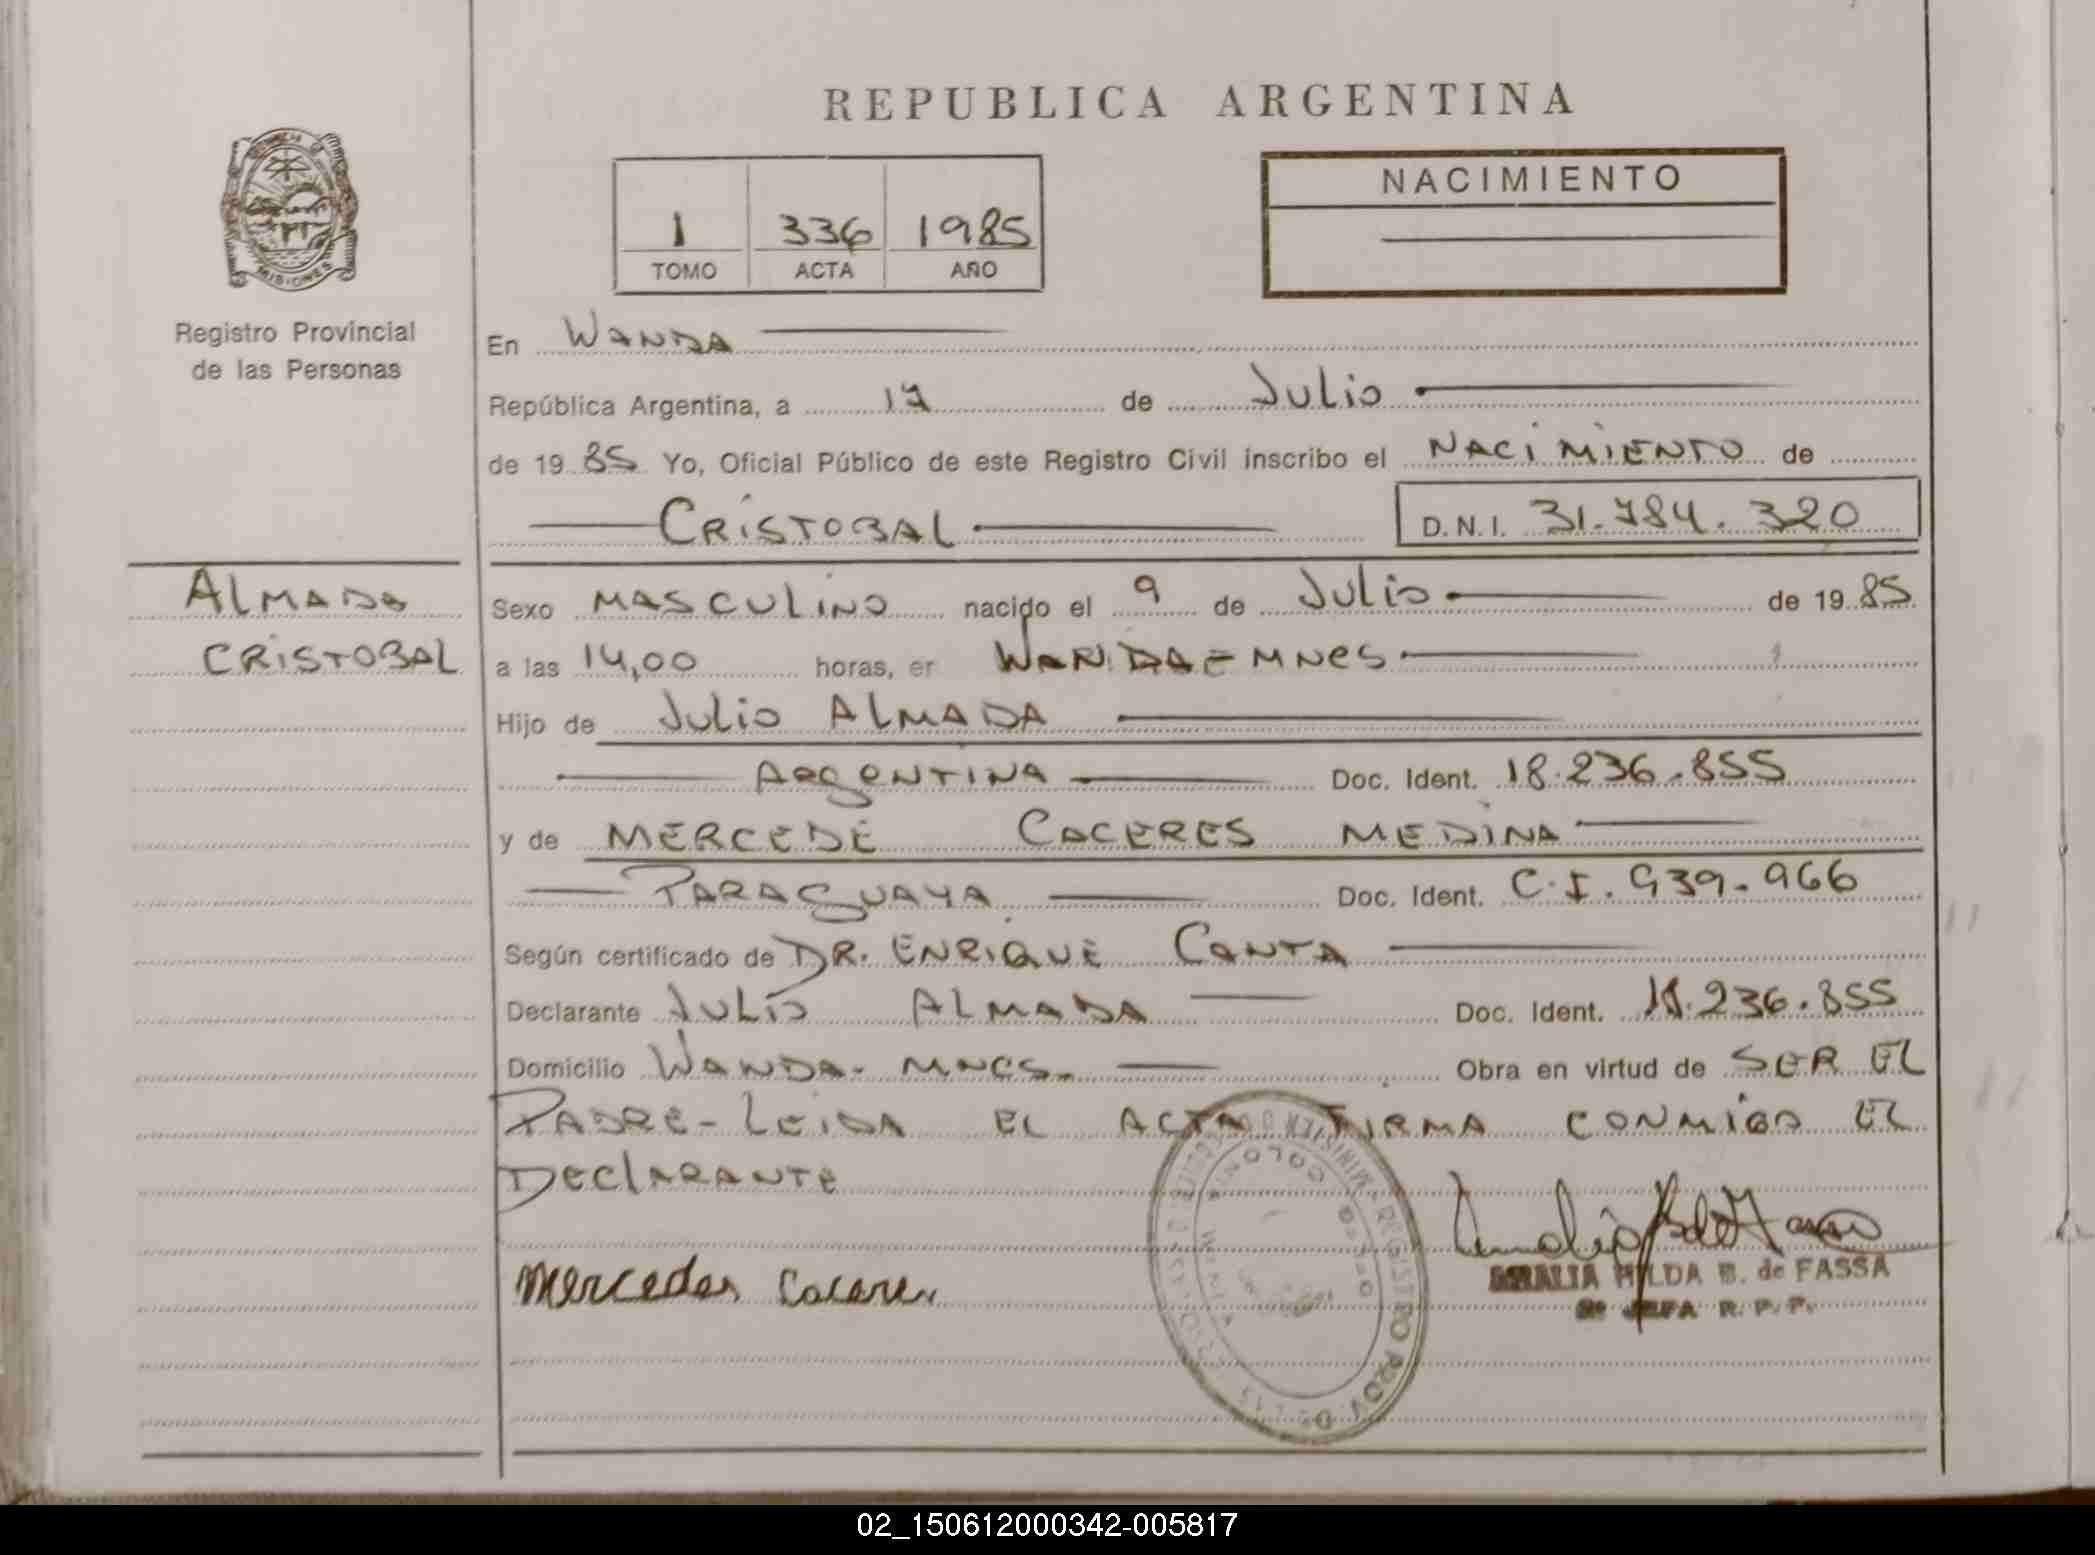 REPUBLICA ARGENTINA
MISIONES
Registro Provincial
de las Personas
1 336 1985
TOMO ACTA AÑO
NACIMIENTO
En WANDA
República Argentina, a 17 de Julio
de 19 85 Yo, Oficial Público de este Registro Civil inscribo el NACIMIENTO de
CRISTOBAL
D.N.I. 31.784.320
ALMADA
CRISTOBAL
Sexo MASCULINO nacido el 9 de Julio de 19 85
a las 14,00 horas, en WANDA - MNES
Hijo de Julio ALMADA
ARGENTINA Doc. Ident. 18.236.855
y de MERCEDE CACERES MEDINA
PARAGUAYA Doc. Ident. C.I. 939.966
Según certificado de DR. ENRIQUE CANTA
Declarante JULIO ALMADA Doc. Ident. 18.236.855
Domicilio WANDA - MNES. Obra en virtud de SER EL
PADRE - LEIDA EL ACTA FIRMA CONMIGO EL
DECLARANTE
Mercedes Cacere
AMALIA HILDA B. de FASSA
JEFA R. P. P.
REGISTRO PROV. DE
02_150612000342-005817